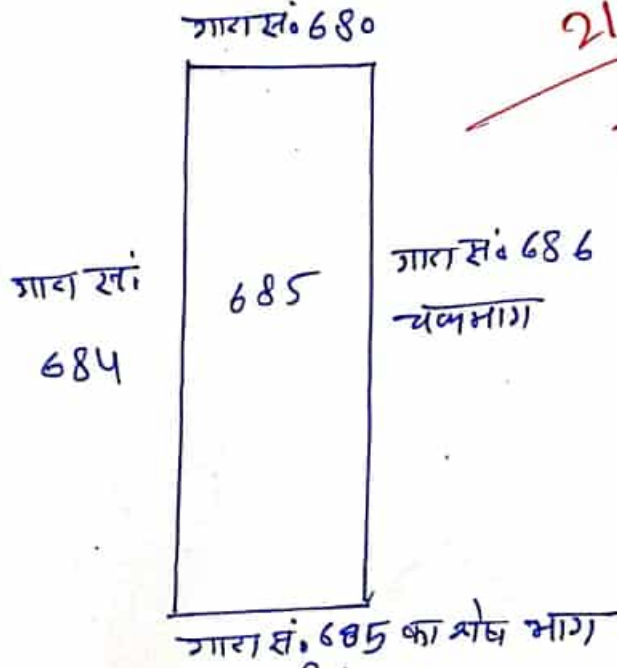 गाटा सं. 680
21
गाटा सं.
684
685
गाटा सं. 686
चकमार्ग
गाटा सं. 685 का शेष भाग